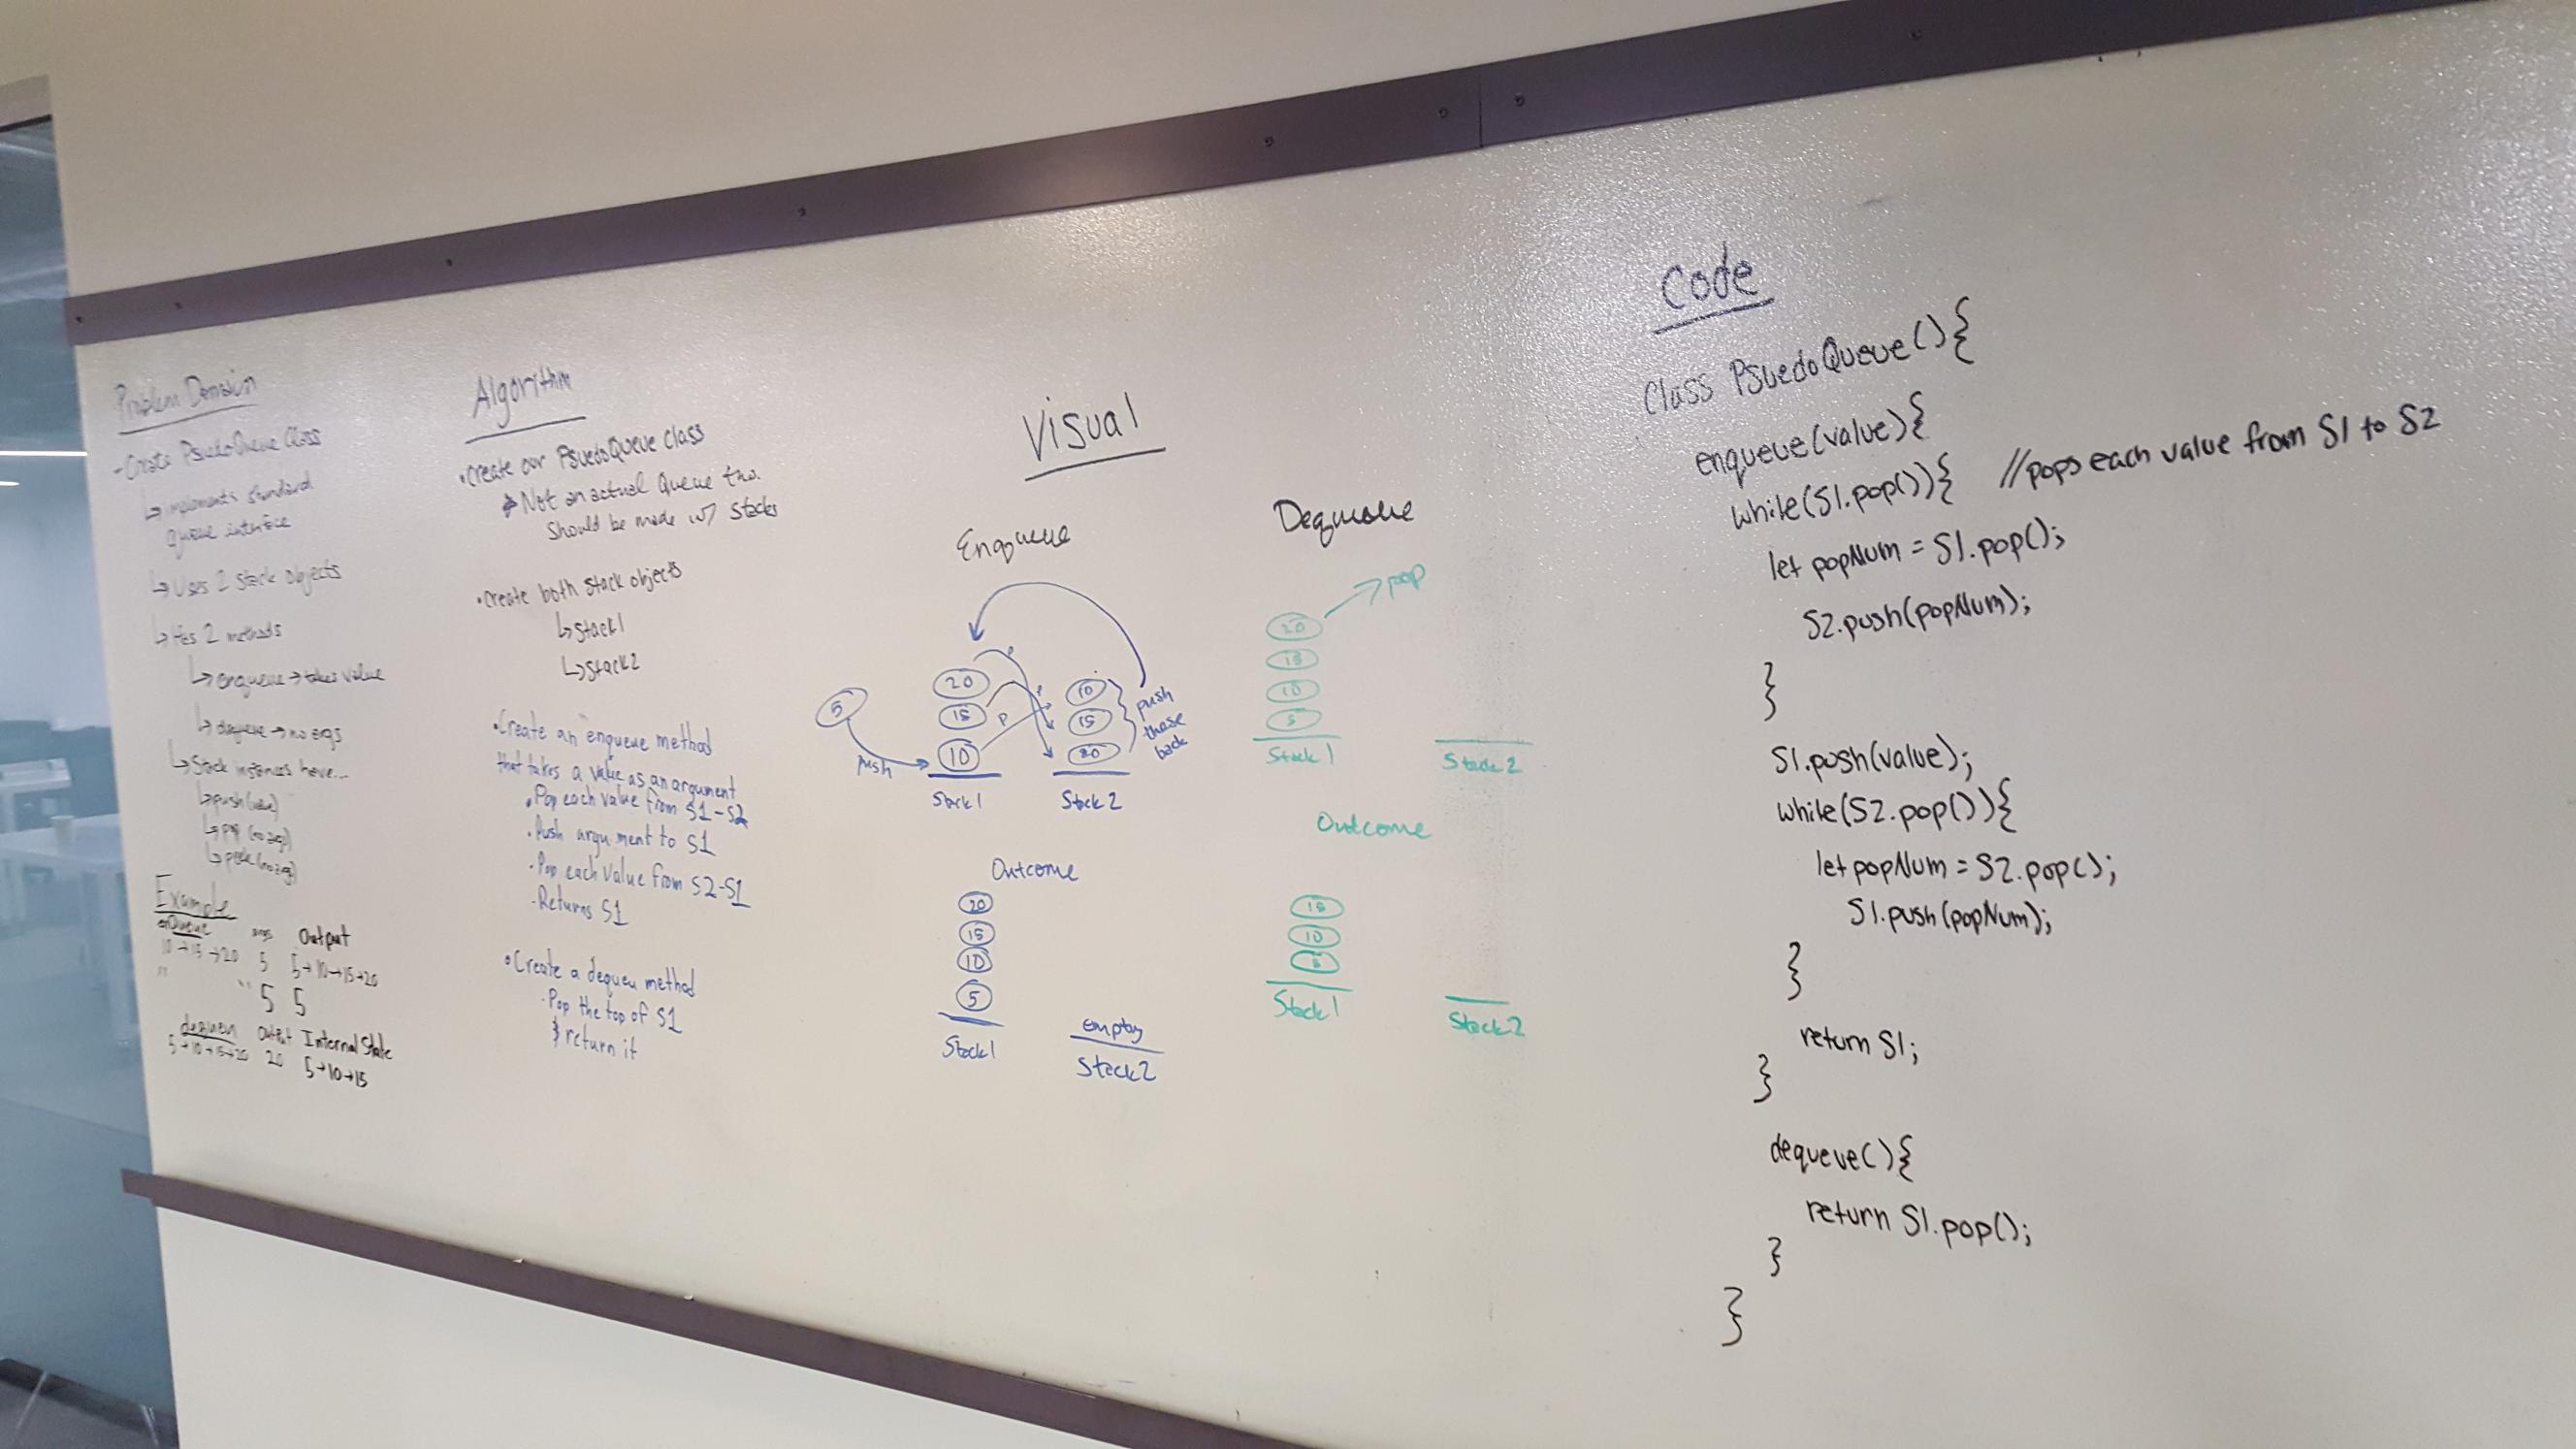 Problem Domain
- Create PsuedoQueue Class
↳ implements standard
Queue interface
↳ Uses 2 stack objects
↳ Has 2 methods
↳ enqueue → takes value
↳ dequeue → no args
↳ Stack instances have...
↳ push
↳ pop (no args)
↳ peek (no args)
Example
enQueue args Output
10 → 15 → 20 5 5 → 10 → 15 → 20
" " 5 5
Output Internal State
5 → 10 → 15 → 20 20 5 → 10 → 15
Algorithm
• Create our PsuedoQueue class
Not an actual Queue tho.
Should be made w/ Stacks
• Create both stack objects
↳ stack1
↳ stack2
• Create an enqueue method
that takes a value as an argument
• Pop each value from S1-S2
• Push argument to S1
• Pop each value from S2-S1
• Returns S1
• Create a dequeu method
• Pop the top of S1
& return it
Visual
Enqueue
5
push
20
15
10
Stack1
P
P
10
15
20
Stack 2
push
these
back
Outcome
20
15
10
5
Stack1
empty
Stack2
Dequeue
pop
20
15
10
5
Stack1
Stack 2
Outcome
15
10
5
Stack1
Stack2
Code
Class PsuedoQueue(){
enqueue(value){
while(S1.pop()){ //pops each value from S1 to S2
let popNum = S1.pop();
S2.push(popNum);
}
S1.push(value);
while(S2.pop()){
let popNum = S2.pop();
S1.push(popNum);
}
return S1;
}
dequeue(){
return S1.pop();
}
}